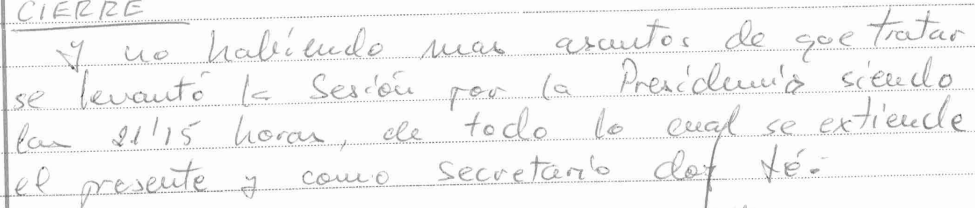 CIERRE
Y no habiendo mas asuntos de que tratar
se levantó la Sesión por la Presidencia siendo
las 21'15 horas, de todo lo cual se extiende
el presente y como secretario doy fé.